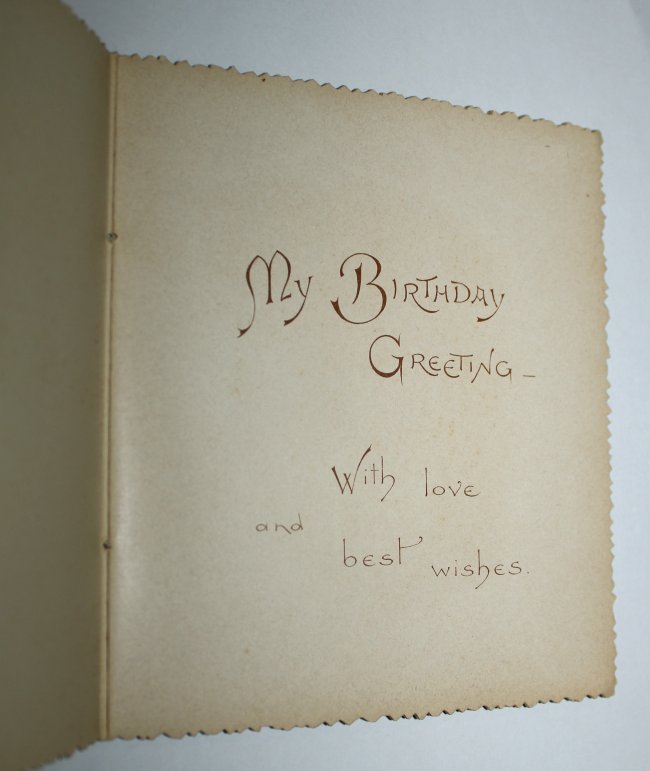 My Birthday
Greeting –
With love
and
best wishes.